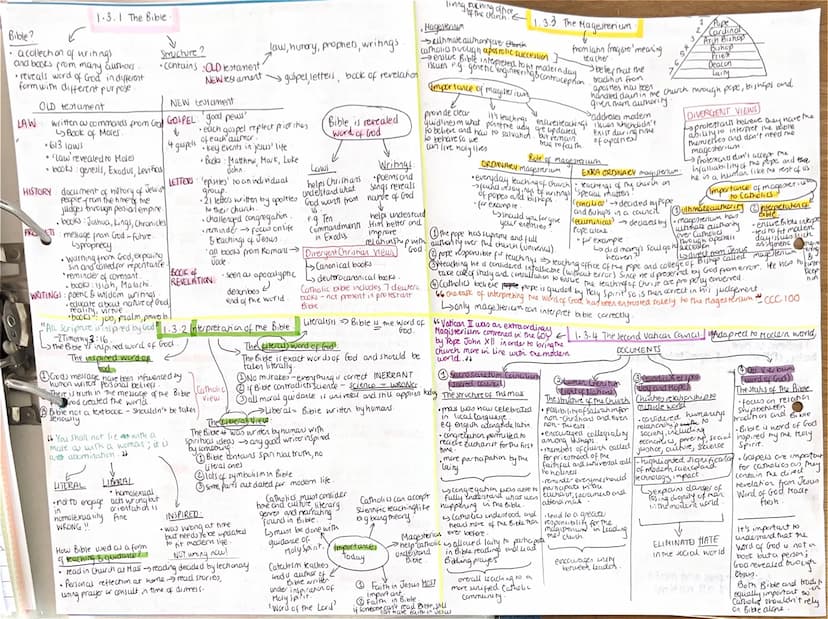 1.3.1 The Bible.
Bible?
• a collection of writings
and books from many authors.
• reveals word of God in different
form with different purpose.
Structure?
• contains: OLD testament → law, history, prophets, writings
NEW testament → gospel, letters, book of revelation
OLD testament
LAW:
written as commands from God
↳ Book of Moses.
• 613 laws
• law revealed to Moses
• books: genesis, Exodus, Leviticus
HISTORY
document of history of Jewish
people from the time of the
judges through persian empire
• books: Joshua, Kings, Chronicles
message from God - future
↳ prophecy
• warning from God, exposing
sin and called for repentance
• reminder of covenant.
• books: Isiah, Malachi.
WRITINGS:
poems & wisdom writings
• educate about nature of God,
reality, virtue.
• books: job, psalm, proverbs
NEW testament
GOSPEL
4 gospels
• "good news"
• each gospel replect priorities
of each author.
• key events in Jesus' life
• Books: Matthew, Mark, Luke
John.
LETTERS:
• 'epistles' to an individual
group.
• 21 letters written by apostles
to their church.
• challenged congregation.
• reminder → focus on life
& teachings of Jesus.
• all books from Romans →
BOOK of
REVELATION:
• seen as apocalyptic
describes
end of the world.
Bible is revealed
word of God
Laws
helps Christians
understand what
God wants from
us
eg Ten
Commandments
in Exodus
Writings
• Poems and
songs reveals
nature of God
helps understand
Him better and
improve
relationship with
God
Divergent Christian Views
↳ Canonical books
↳ deuterocanonical books.
Catholic bible includes 7 deutero
books - not present in protestant
Bible
1.3.3 The Magesterium
living teaching office
of the church
Magesterium
→ authoritative
catholics through apostolic succession
→ ensure Bible interpreted for modern day
issues e.g. genetic engineering & contraception
from latin 'magister' meaning
teacher
belief that the
tradition from
apostles has been
handed down in the church through pope, bishops and
given same authority
Pope
Cardinal
Arch Bishop
Bishop
Priest
Deacon
Laity
Importance of magesterium
provide clear
guidelines on what
to believe and how
to believe so we
can live holy lives
it's teachings
point the way
to salvation
ensures teachings
are updated
but remain
true to faith
addresses modern
issues which didn't
exist during time
of apostles
DIVERGENT VIEWS
↳ protestants believe they have the
ability to interpret the bible
themselves and don't need the
magesterium
↳ Protestants don't accept the
infallibility of the Pope and think
he is a human like the rest of us
Role of magesterium
ORDINARY magesterium
• Everyday teaching of church
→ found in writings of writings
of popes and bishops
↳ for example
↳ should you forgive
your enemies?
EXTRA ORDINARY magesterium
• teachings of the church on
'special matters'
conciliar → decided by Pope
and Bishops in a council.
pontifical → decided by
Pope alone.
↳ for example
↳ did mary's soul go to
heaven?
Importance of magesterium
to Catholics
① Ultimate authority
Magesterium has
ultimate authority
over Catholics
through apostolic
succession
② Interpretation of
Bible
• ensure Bible interpreted
① the Pope has supreme and full
authority over the church (universal)
② Pope responsible for teachings → teaching office of the pope and college of Bishops called magesterium
③ teaching he is considered infallible (without error) since he is protected by God from error.
④ Catholics believe pope is guided by Holy Spirit so is then correct in his judgement.
"the task of interpreting the Word of God has been entrusted solely to the Magesterium" CCC 100
↳ only magesterium can interpret bible correctly.
1.3.2 Interpretation of the Bible
"All Scripture is inspired by God"
- 2 Timothy 3:16
↳ the Bible is inspired word of God
The inspired word of
God
① God's message have been influenced by
human writer's personal beliefs.
② There is truth in the message of the Bible
- God created the world.
③ Bible not a textbook - shouldn't be taken
literally
Catholic
view
Literalism → Bible is the word of
God.
The literal word of God
The Bible is exact words of God and should be
taken literally.
① No mistakes - everything is correct INERRANT
② If Bible contradicts science - science → wrong.
③ all moral guidance is relevant and still applies today.
The liberal view
↳ Liberal = Bible written by human
The Bible was written by human with
spiritual ideas → any good writer inspired
by something
① Bible contains spiritual truth, no
literal ones
② lots of symbolism in Bible
③ some parts outdated for modern life.
"You shall not lie with a
male as with a woman; it is
an abomination."
LITERAL
• not to engage
in
homosexuality
WRONG!!
LIBERAL
• homosexual
acts wrong but
orientation is
fine
INSPIRED:
• was wrong at time
but needs to be updated
to fit modern life.
Not wrong now!
How Bible used as a form
of teaching & guidance?
• read in church at Mass → reading decided by lectionary
• Personal reflection at home → read stories,
using prayer or consult in time of distress.
Importance
today
Catholics must consider
time and culture, literary
genre and meaning
found in Bible.
↳ must be done with
guidance of
Holy Spirit.
Catholics can accept
scientific teachings like
big bang theory
Magesterium
help catholics
understand
Bible
Catechism teaches
God is author of
Bible written
under inspiration of
Holy Spirit.
'Word of the Lord'
① Faith in Jesus MOST
important
② Faith in Bible
if someone can't read Bible, still
can have faith in Jesus
1.3.4 The Second Vatican Council
Vatican II was an extraordinary
Magesterium convened in the 60s
by Pope John XXIII in order to bring the
church more in line with the modern
world.
Adapted to modern world.
DOCUMENTS
The structure of the mass
• mass was now celebrated
in local language,
eg english alongside latin.
• congregation permitted to
receive Eucharist for the first
time.
• more participation by the
laity
↳ congregation was able to
fully understand what was
happening in the Bible.
↳ Catholics understood and
heard more of the Bible than
ever before.
↳ allowed laity to participate
in Bible readings and lead
Bidding prayers
overall leading to a
more unified Catholic
community.
The structure of the Church
• possibility of salvation for
non-christians and even
non-theists
• encouraged collegiality
among bishops
• members of church called
for priesthood of the
faithful and universal call
to holiness
• reminder everyone should
participate in the
eucharist, sacrament and
other mass
• lead to a greater
responsibility for the
'magesterium' in leading
the church
encourages unity
between leaders.
Churches relationship to
outside world
• considered humanity's
relationship to
society, including
economics, poverty, social
justice, culture, science
• Highlighted significance
of modern science and
technology impact
↳ explains danger of
losing dignity of man
in the modern world
ELIMINATE HATE
in the social world
The status of the Bible
• focus on relationship
between tradition
and Bible
• Bible is word of God
inspired by the Holy
Spirit.
• Gospels are important
for catholics as they
contain the direct
revelation from Jesus
'Word of God made
flesh'.
It's important to
understand that the
Word of God is not a
book but a person;
God revealed through
Jesus.
Both Bible and tradition
equally important so
Catholics shouldn't rely
on Bible alone.